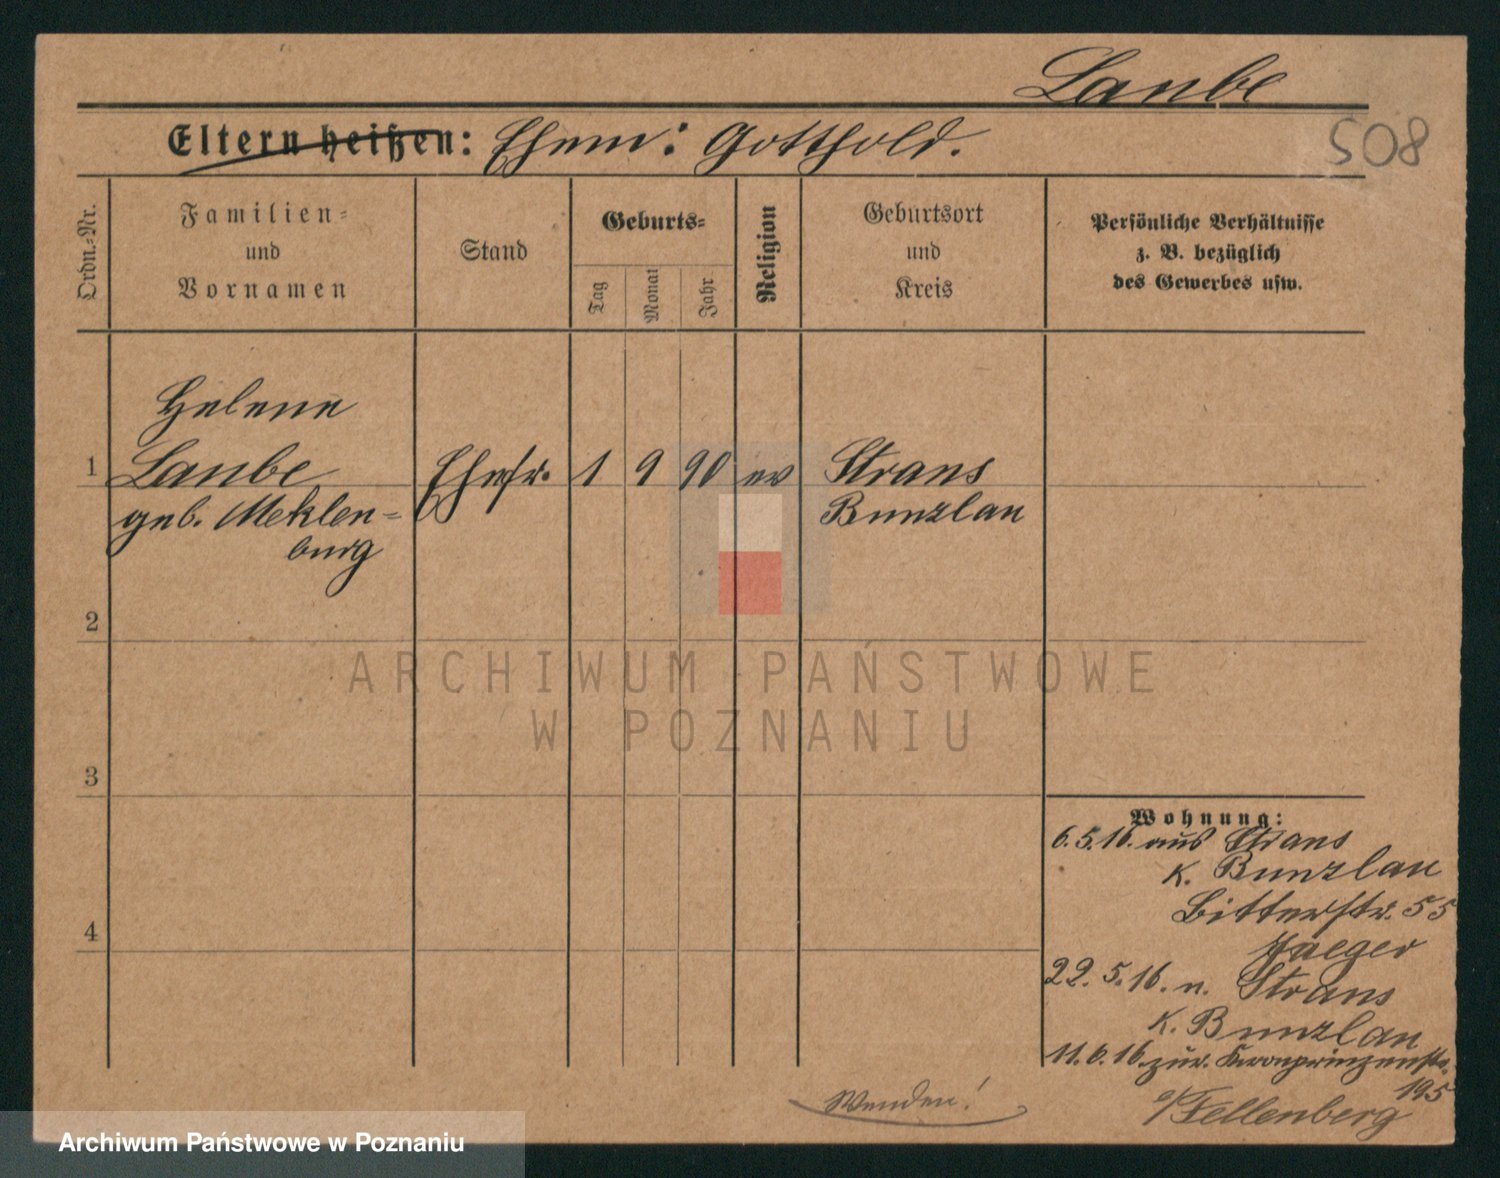 Laube
Eltern heißen: Ehem: Gotthold.
508
Ordn.-Nr.
Familien-
und
Vornamen
Stand
Geburts-
Tag
Monat
Jahr
Religion
Geburtsort
und
Kreis
Persönliche Verhältnisse
z. B. bezüglich
des Gewerbes usw.
Helene
1 Laube Ehefr. 1 9 90 ev Strans
geb. Meklen- Bunzlau
burg
2
3
4
Wohnung:
6.5.16. aus Strans
K. Bunzlau
Bitterstr. 55
Jaeger
22.5.16. n. Strans
K. Bunzlau
11.6.16. zur. Kronprinzenstr.
195
b/Fellenberg
Wenden!
ARCHIWUM PAŃSTWOWE
W POZNANIU
Archiwum Państwowe w Poznaniu